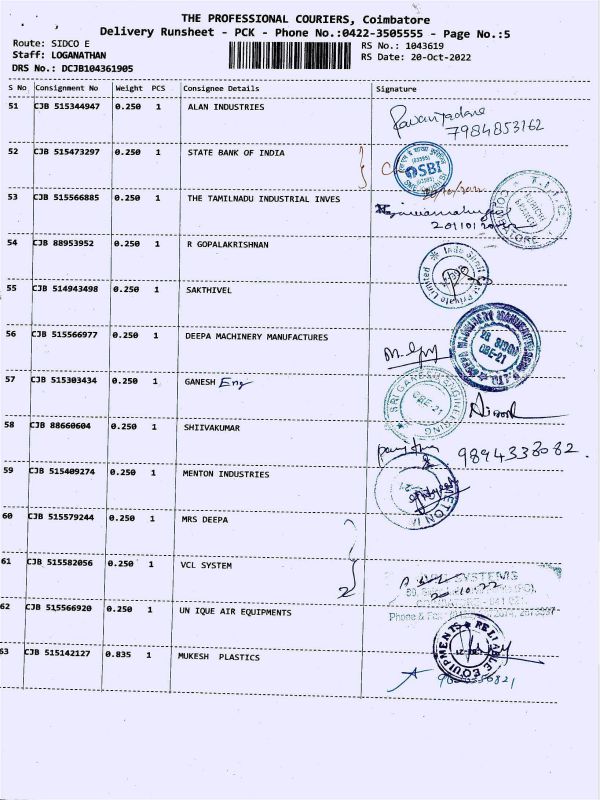 THE PROFESSIONAL COURIERS, Coimbatore
Delivery Runsheet - PCK - Phone No.:0422-3505555 - Page No.:5
Route: SIDCO E RS No.: 1043619
Staff: LOGANATHAN RS Date: 20-Oct-2022
DRS No.: DCJB104361905
S No Consignment No Weight PCS Consignee Details Signature
51 CJB 515344947 0.250 1 ALAN INDUSTRIES
7984853162
52 CJB 515473297 0.250 1 STATE BANK OF INDIA
SBI
53 CJB 515566885 0.250 1 THE TAMILNADU INDUSTRIAL INVES
54 CJB 88953952 0.250 1 R GOPALAKRISHNAN
Private Limited
55 CJB 514943498 0.250 1 SAKTHIVEL
56 CJB 515566977 0.250 1 DEEPA MACHINERY MANUFACTURES
DEEPA MACHINERY MANUFACTURERS P. LTD
57 CJB 515303434 0.250 1 GANESH Eng
SRI GANESH ENGINEERING
CBE-21
58 CJB 88660604 0.250 1 SHIIVAKUMAR
9894333082.
59 CJB 515409274 0.250 1 MENTON INDUSTRIES
60 CJB 515579244 0.250 1 MRS DEEPA
61 CJB 515582056 0.250 1 VCL SYSTEM
SYSTEMS
Phone & Fax
62 CJB 515566920 0.250 1 UN IQUE AIR EQUIPMENTS
RELIABLE EQUIPMENTS
63 CJB 515142127 0.835 1 MUKESH PLASTICS